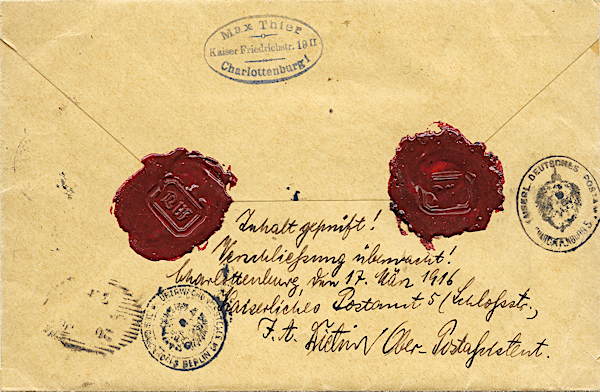 Max Thier
Kaiser Friedrichstr. 19 II
Charlottenburg 1
Inhalt geprüft!
Verschließung überwacht!
Charlottenburg, den 17. März 1916
Kaiserliches Postamt 5 (Schloßstr.,
F. A.
Ober-Postassistent.
KAISERL. DEUTSCHES POSTAMT
BERLIN